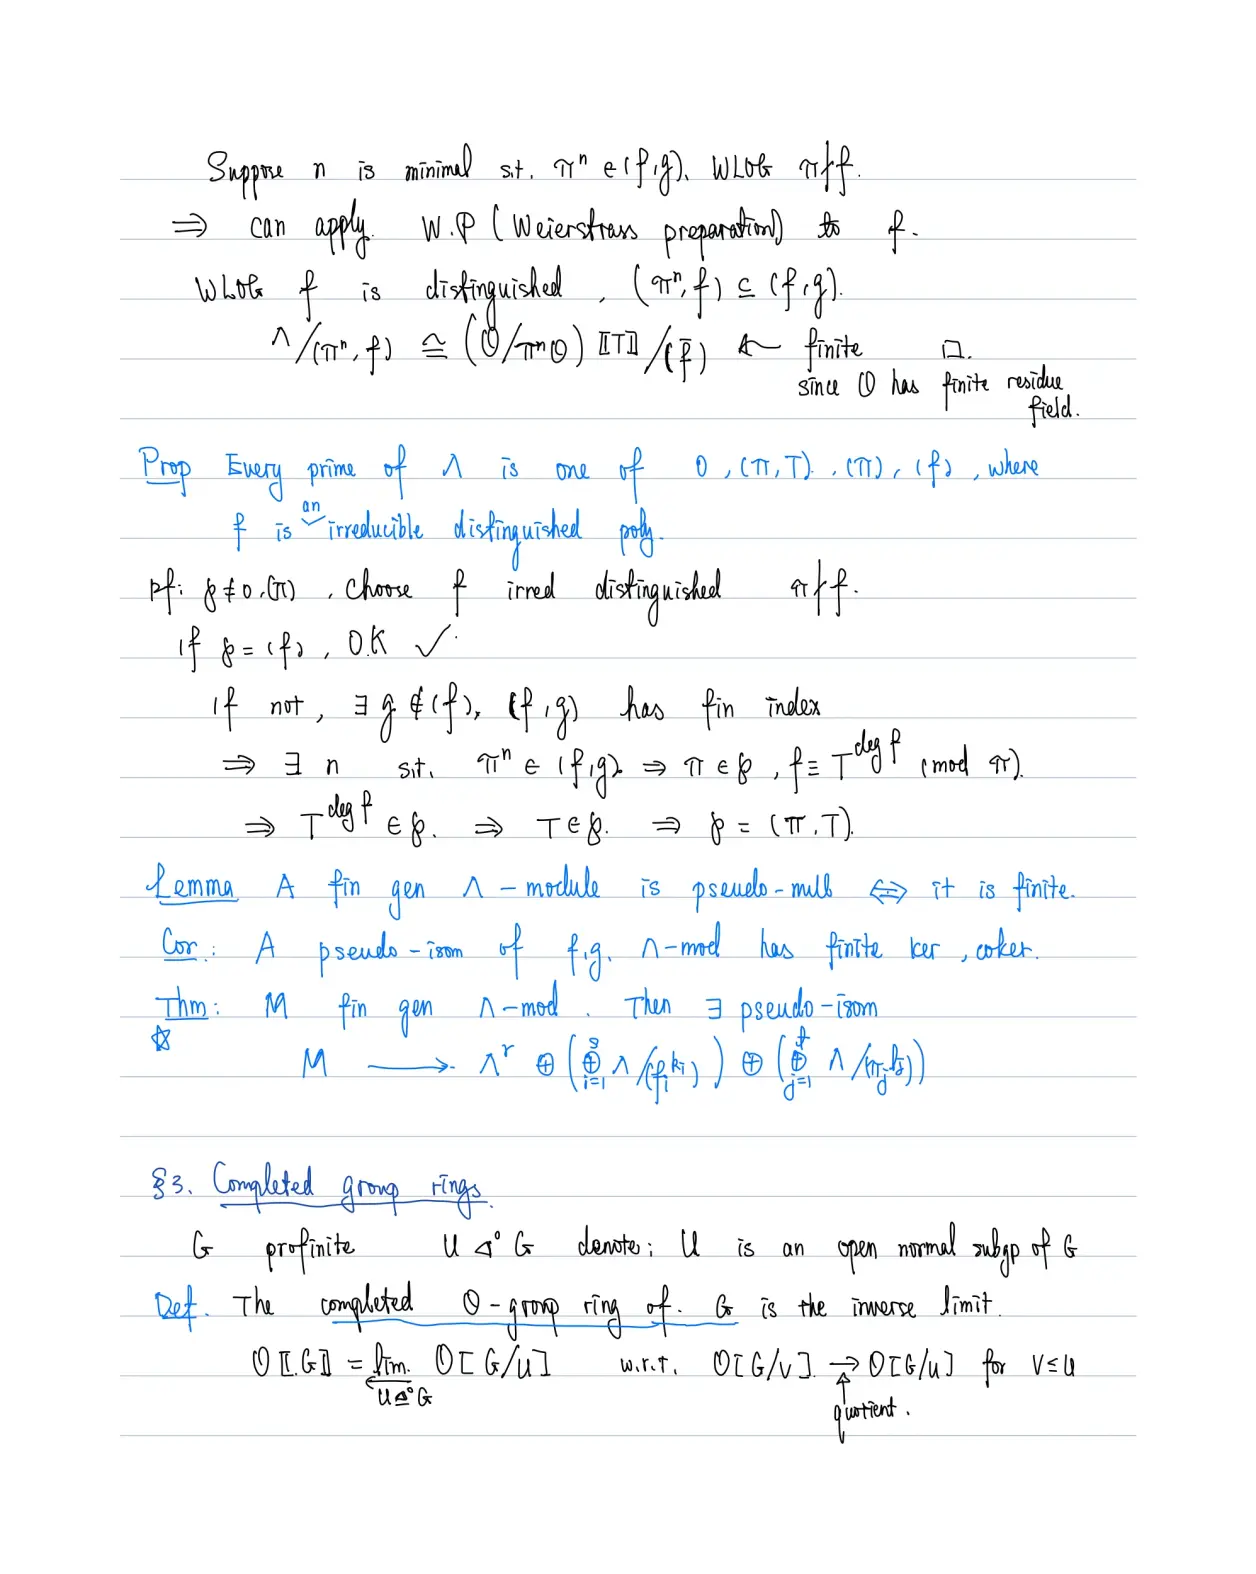 Suppose n is minimal s.t. πⁿ ∈ (f,g). WLOG π∤f.
⇒ can apply W.P (Weierstrass preparation) to f.
WLOG f is distinguished, (πⁿ, f) ⊆ (f,g).
Λ/(πⁿ, f) ≅ (O/πⁿO)⟦T⟧/(f̄) ← finite □.
since O has finite residue
field.
Prop Every prime of Λ is one of 0, (π,T), (π), (f), where
f is an irreducible distinguished poly.
Pf: ℘ ≠ 0, (π), choose f irred distinguished π∤f.
if ℘ = (f), O.K ✓.
if not, ∃ g ∉ (f), (f,g) has fin index
⇒ ∃ n s.t. πⁿ ∈ (f,g) ⇒ π ∈ ℘, f ≡ T^{deg f} (mod π).
⇒ T^{deg f} ∈ ℘. ⇒ T ∈ ℘. ⇒ ℘ = (π,T).
Lemma A fin gen Λ-module is pseudo-null ⇔ it is finite.
Cor: A pseudo-isom of f.g. Λ-mod has finite ker, coker.
Thm: M fin gen Λ-mod. Then ∃ pseudo-isom
☆ M ⟶ Λ^r ⊕ (⊕_{i=1}^{s} Λ/(f_i^{k_i})) ⊕ (⊕_{j=1}^{t} Λ/(π_j^{k_j}))
§3. Completed group rings.
G profinite U ⊲° G denote: U is an open normal subgp of G
Def. The completed O-group ring of G is the inverse limit.
O⟦G⟧ = lim← _{U⊴°G} O[G/U] w.r.t. O[G/V] → O[G/U] for V≤U
↑
quotient.